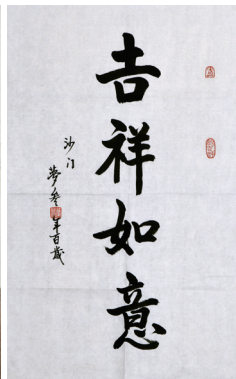 吉祥如意
沙门
梦参
年百岁